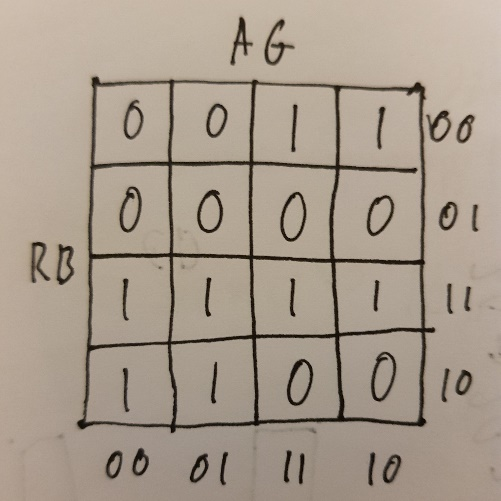 AG
0 0 1 1 00
0 0 0 0 01
RB
1 1 1 1 11
1 1 0 0 10
00 01 11 10